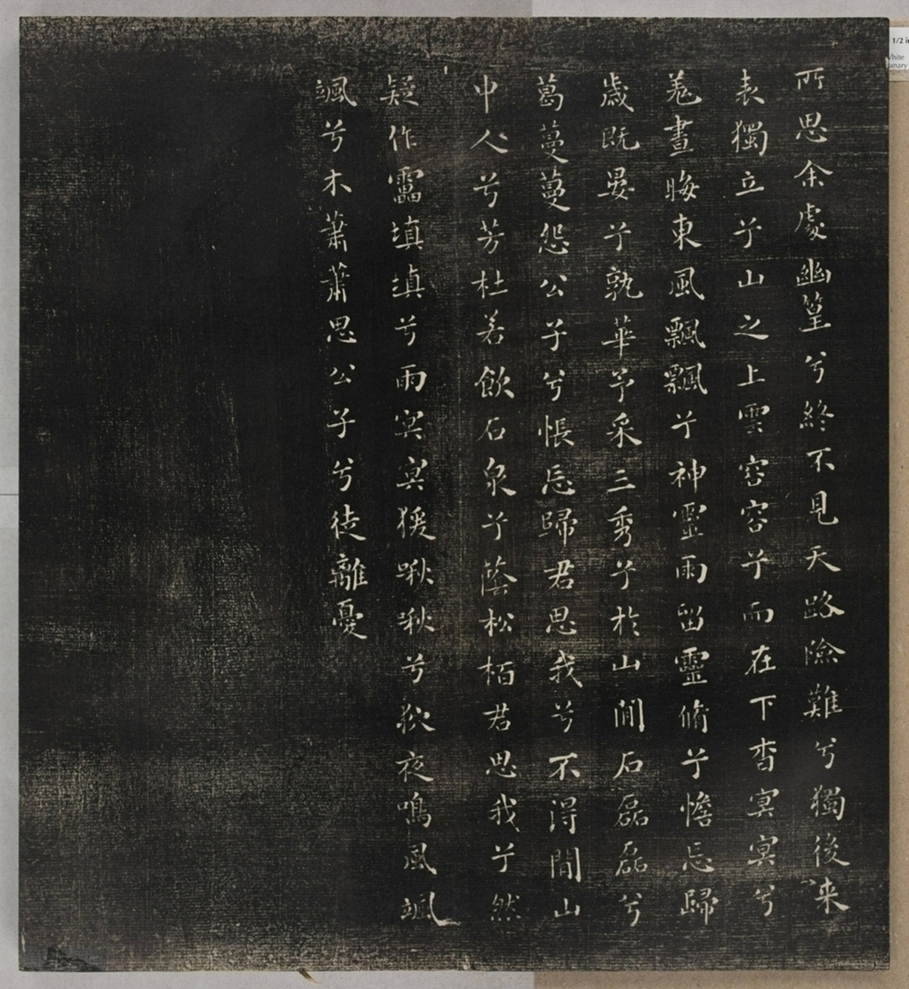 所思余處幽篁兮終不見天路險難兮獨後来
表獨立兮山之上雲容容兮而在下杳冥冥兮
羌晝晦東風飄飄兮神靈雨留靈脩兮憺忘歸
歲既晏兮孰華予采三秀兮於山間石磊磊兮
葛蔓蔓怨公子兮悵忘歸君思我兮不得閒山
中人兮芳杜若飲石泉兮蔭松栢君思我兮然
疑作靁填填兮雨冥冥猨啾啾兮狖夜鳴風颯
颯兮木蕭蕭思公子兮徒離憂
1/2 in
White